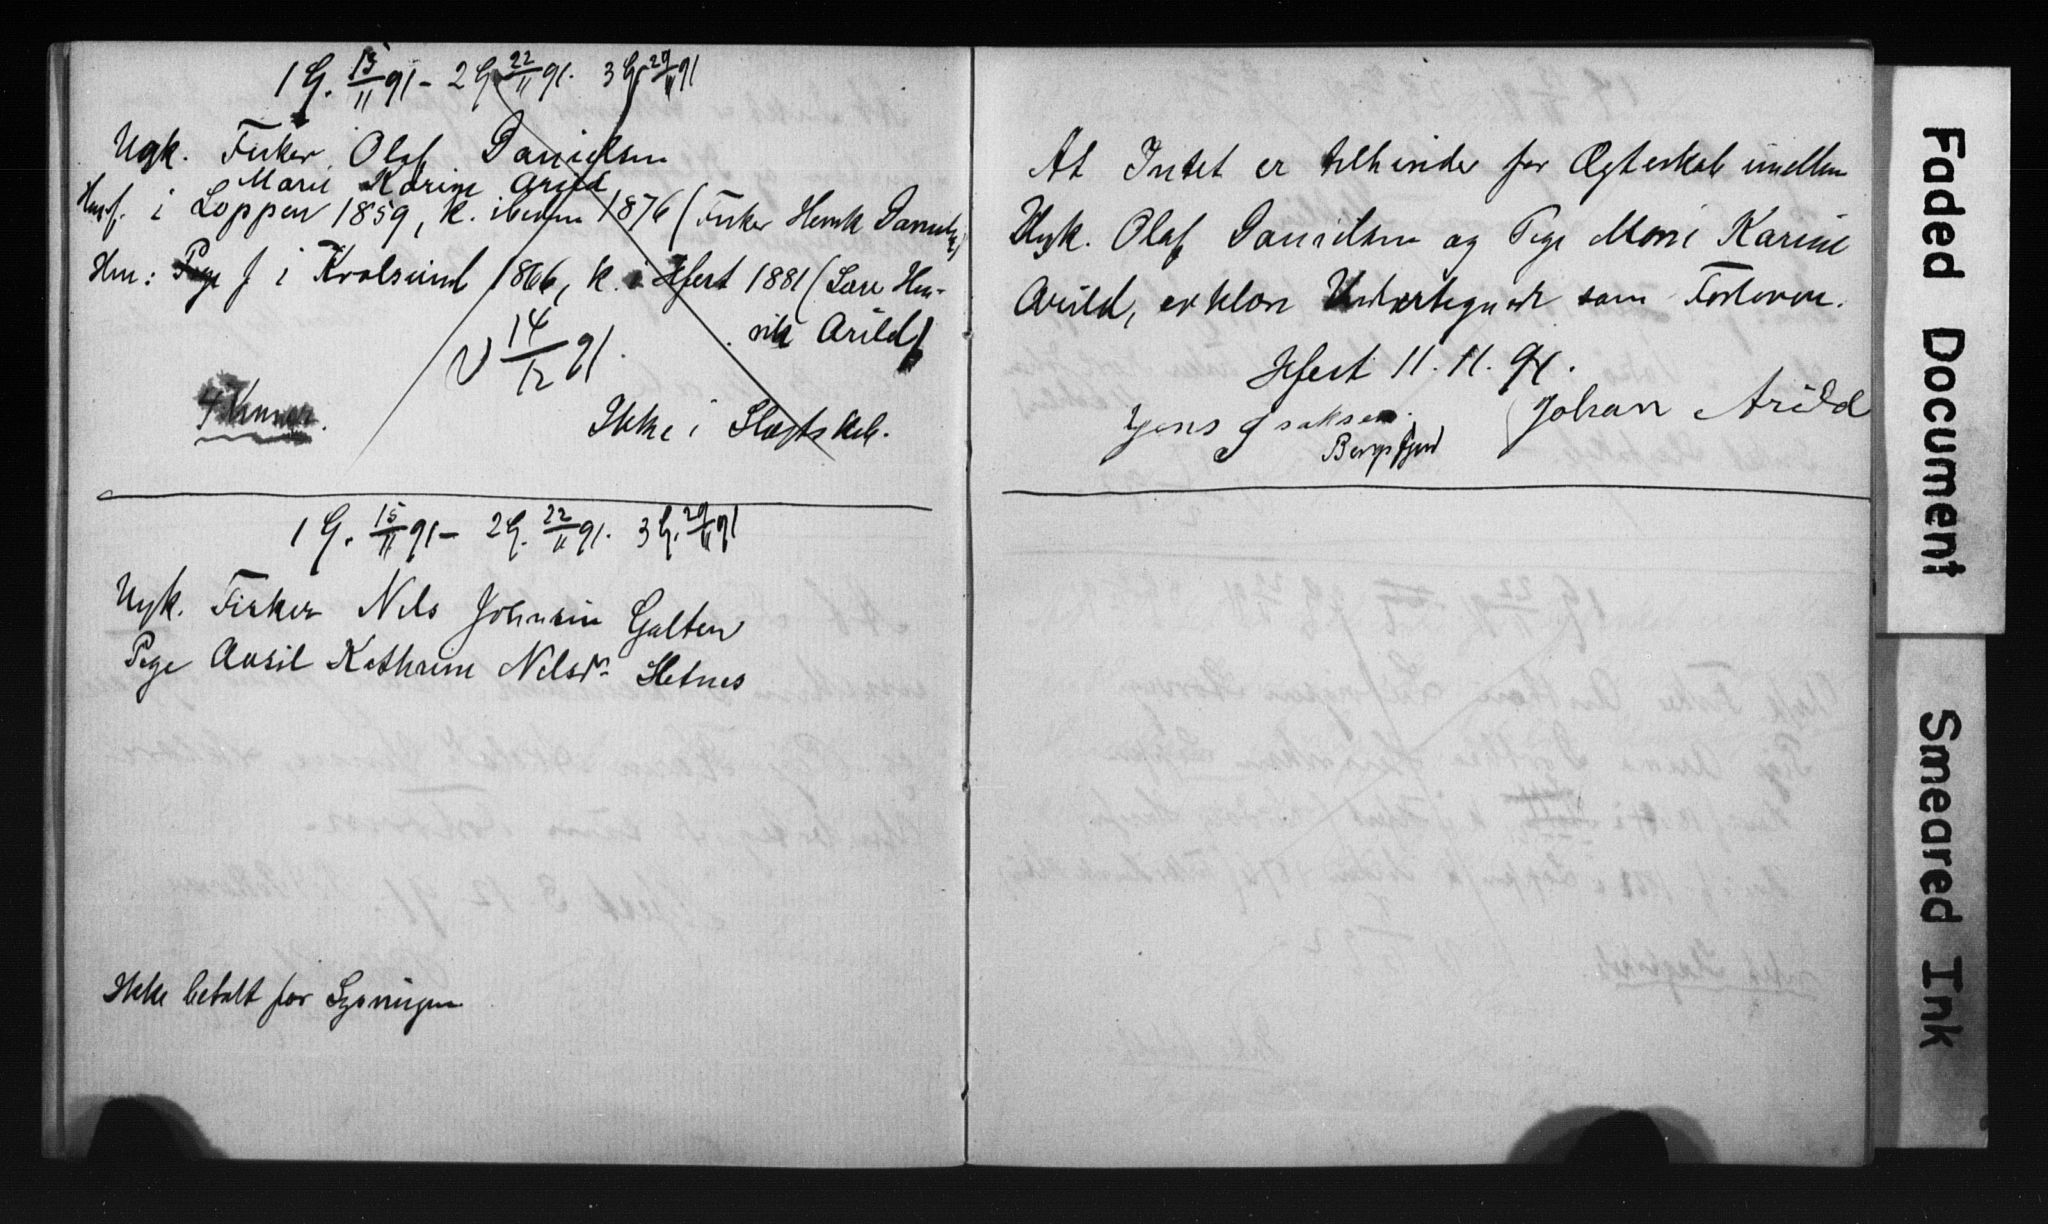 1 G. 15/11 91 – 2 G. 22/11 91. 3 G. 29/11 91
Ugk. Fisker Olaf Danielsen
Marie Karine Arild
Han f. i Loppen 1859, k. ibidem 1876 (Fisker Henrik Danielsen)
Hun: Pige f i Kvalsund 1866, k. i Hfest 1881 (Lars Hen-
rik Arild)
V 14/12 91.
4 Kroner.
Ikke i Slægtskab.
1 G. 15/11 91 – 2 G. 22/11 91. 3 G. 29/11 91
Ugk. Fisker Nils Johnsen Galten
Pige Avsil Kathrine Nilsdr. Sletnes
Ikke betalt for Lysningen
At Intet er tilhinder for Ægteskab imellem
Ugk. Olaf Danielsen og Pige Marie Karine
Arild, erklærer Undertegnede som Forlovere.
Hfest 11. 11. 91.
Jens Isaksen. Johan Arild
Bergsfjord
Faded Document
Smeared Ink